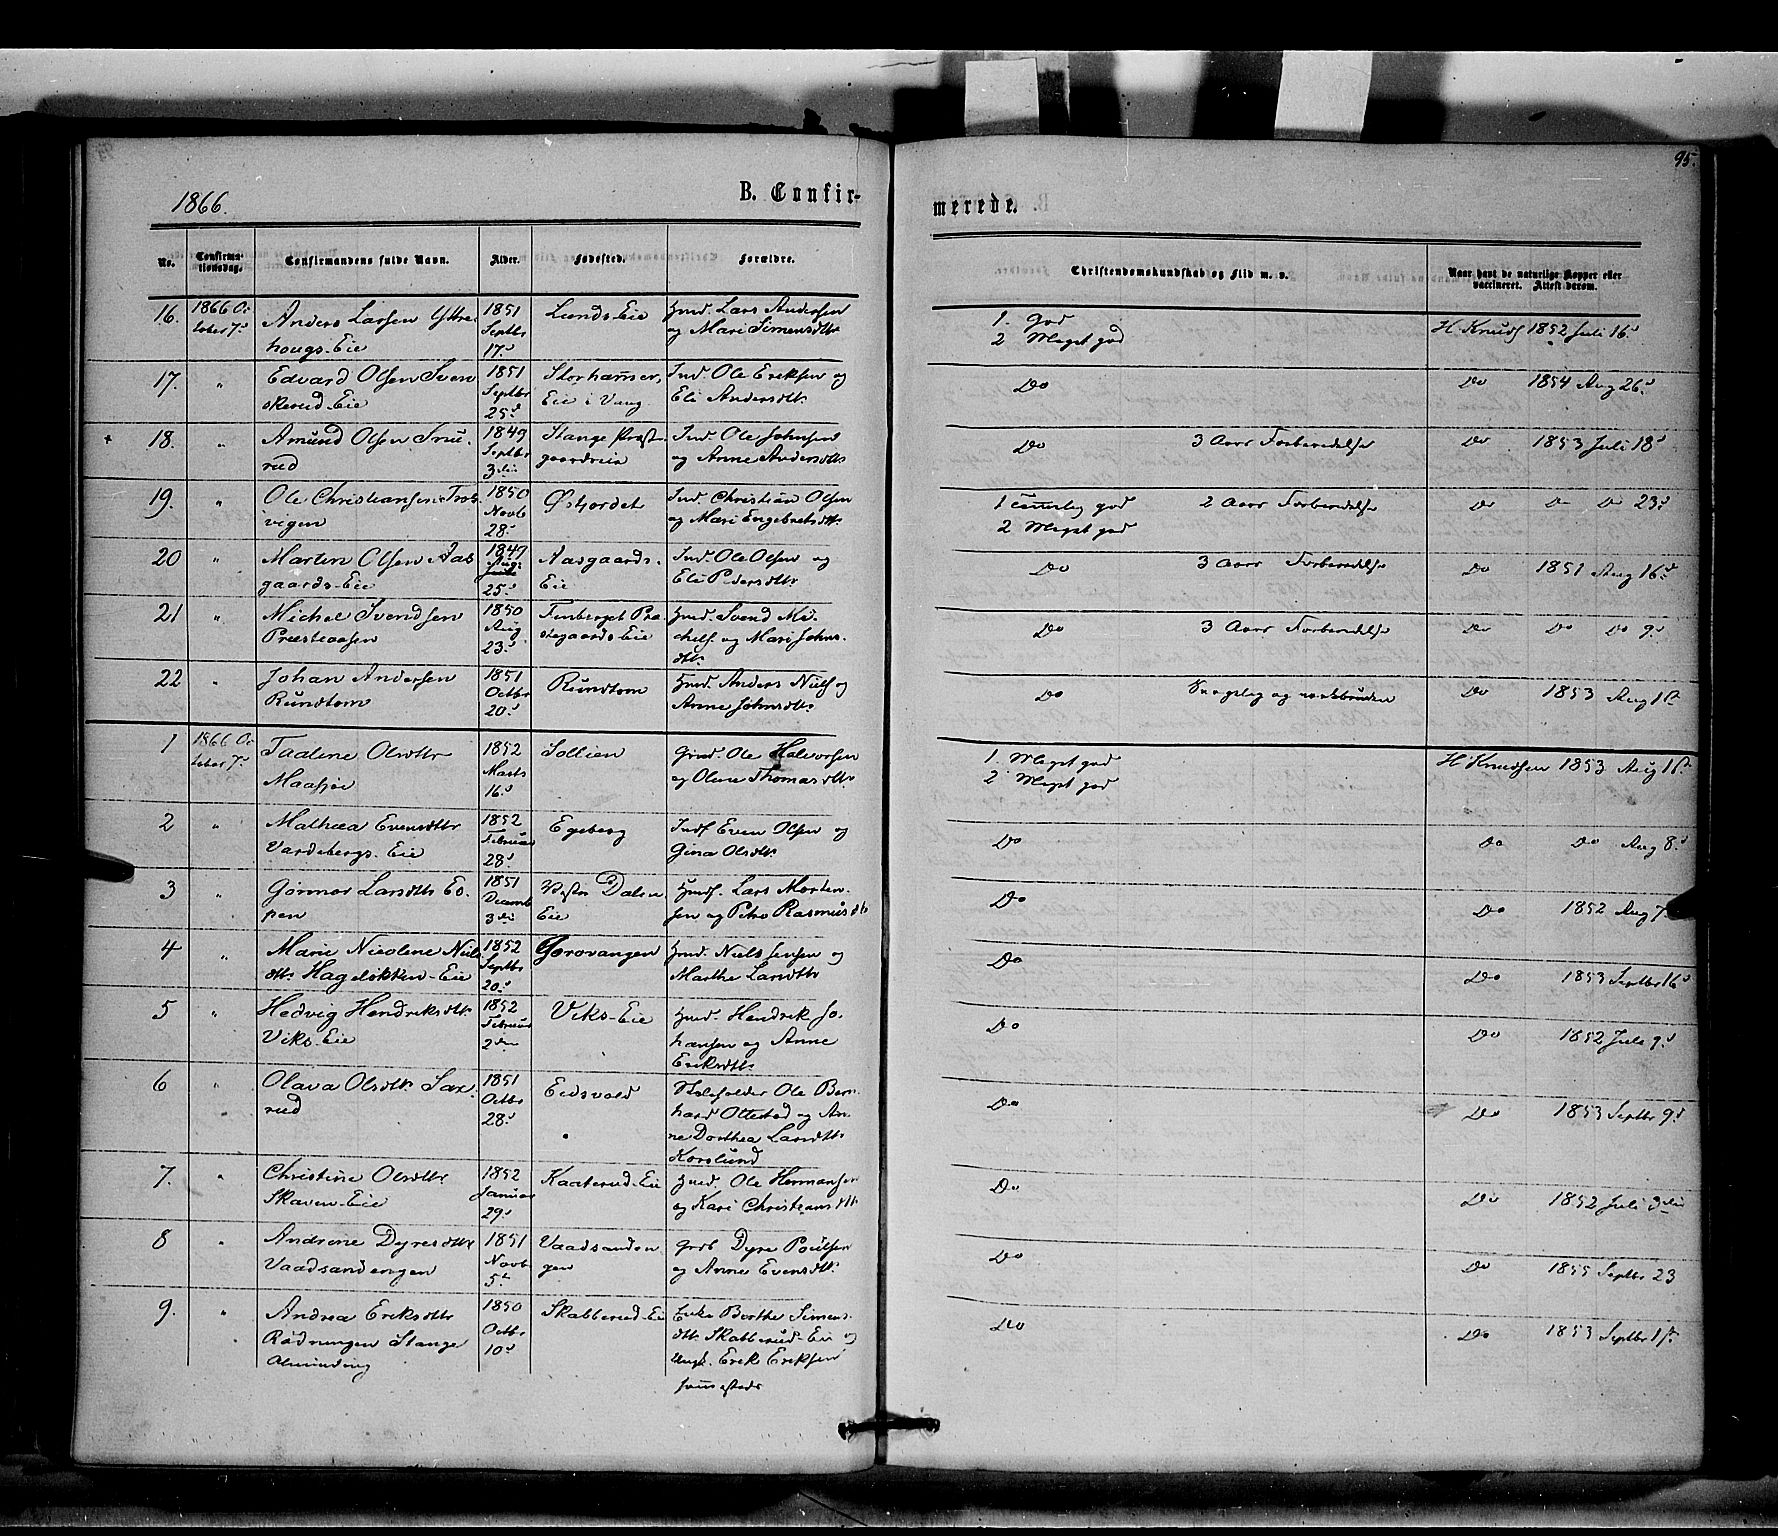 95.
1866.
B. Confir-
merede.
No.
Confirma-
tionsdag.
Confirmandens fulde Navn.
Alder.
Fødested.
Forældre.
Christendomskundskab og Flid m. v.
Naar havt de naturlige Kopper eller
vaccineret. Attest derom.
16. 1866 Oc
tober 7d
Anders Larsen Yttre
hougs-Eie
1851
Septbr
17d
Lunds Eie
Hmd. Lars Andersen
og Mari Simensdtr
1. God
2 Meget god
H. Knuds 1852 Juli 16d
17. "
Edvard Olsen Sven
skerud-Eie
1851
Septbr
25d
Storhamer,
Eie i Vang
Ind. Ole Eriksen og
Eli Andersdtr
Do
Do 1854 Aug 26d
+ 18. "
Amund Olsen
rud
1849
Septbr
3die
Stange Præst
gaardseie
Ind. Ole Johnsen
og Anne Andersdtr
Do 3 Aars Forberedelse
Do 1853 Juli 18d
19. "
Ole Christiansen
vigen
1850
Novb
28d
Østjordet
Ind. Christian Olsen
og Mari Engebretsdtr
1 temmelig god 2 Aars Forberedelse
2 Meget god
Do Do Do 23d
20 "
Martin Olsen Aas
gaards-Eie
1849
Aug
25d
Aasgaards-
Eie
Ind. Ole Olsen og
Eli Pedersdtr
Do 3 Aars Forberedelse
Do 1851 Aug 16d
21 "
Michel Svendsen
Præsteaasen
1850
Aug
23d
Tomberget Præ
stegaards-Eie
Hmd. Svend Mi-
chels. og Mari Johns-
dtr
Do 3 Aars Forberedelse
Do Do Do 9d
22 "
Johan Andersen
Rundtom
1851
Octbr
20d
Rundtom
Hmd. Anders Niels og
Anne Johnsdtr
Do Svagelig og
Do 1853 Aug 1st
1 1866 Oc
tober 7d
Taaline Olsdtr
Maasjøe
1852
Marts
16d
Sollien
Gmd. Ole Halvorsen
og Oline Thomasdtr
1. Meget god
2 Meget god
H Knudsen 1853 Aug 1st
2 "
Mathea Evensdtr
Vardebergs-Eie
1852
Februar
28d
Egeberg
Inds Even Olsen og
Gina Olsdtr
Do
Do Do Aug 8d
3 "
Gunmor Larsdtr Es-
pen
1851
Decemb
3die
Vestre Dalen
Eie
Hmds. Lars Morten-
sen og Petro Rasmusdtr
Do
Do 1852 Aug 7
4 "
Marie Nicoline Niels
dtr Hageløkken-Eie
1852
Septbr
20d
Gorovangen
Hmd. Niels Jensen og
Marthe Larsdtr
Do
Do 1853 Septbr 16d
5 "
Hedvig Hendriksdtr
Viks-Eie
1852
Februar
2den
Viks-Eie
Hmd. Hendrik Jo-
hansen og Anne
Eriksdtr
Do
Do 1852 Juli 9d
6 "
Olava Olsdtr Sax-
rud
1851
Octbr
28d
Eidsvold
Skoleholder Ole Bern
hard Ottestad og An-
ne Dorthea Larsdtr
Korslund
Do
Do 1853 Septbr 9d
7. "
Christine Olsdtr
Skaven-Eie
1852
Januar
29d
Kaaterud-Eie
Hmd. Ole Hermansen
og Kari Christiansdtr
Do
Do 1852 Juli 3die
8 "
Andrine Dyresdtr
Vaadsandengen
1851
Novb
5te
Vaadsanden
gen
Grdb Dyre Poulsen
og Anne Evensdtr
Do
Do 1855 Septbr 23
9. "
Andrea Eriksdtr
Rødningen Stange
Alminding
1850
Octbr
10d
Skabberud-Eie
Enke Berthe Simens
dtr Skabberud-Eie og
Ungk. Erik Eriksen
sammesteds
Do
Do 1853 Septbr 1st